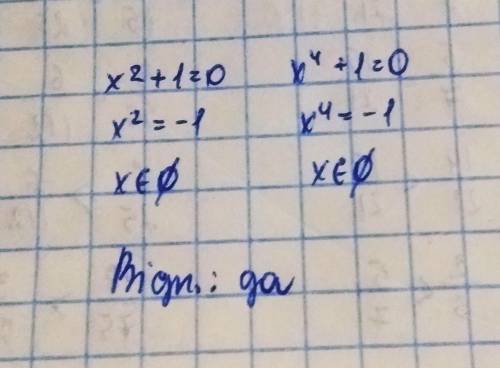 x² + 1 = 0    x⁴ + 1 = 0
x² = -1    x⁴ = -1
x ∈ ∅    x ∈ ∅
Відп.: да